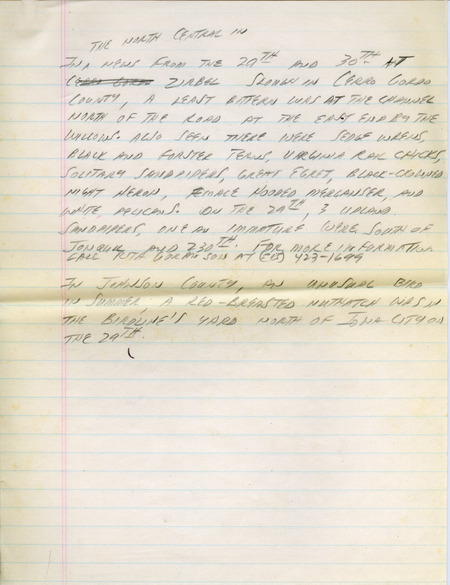 THE NORTH CENTRAL IN
IN A NEWS FROM THE 29TH AND 30TH AT
ZIRBEL SLOUGH IN CERRO GORDO
COUNTY, A LEAST BITTERN WAS AT THE CHANNEL
NORTH OF THE ROAD AT THE EAST END BY THE
WILLOWS. ALSO SEEN THERE WERE SEDGE WRENS,
BLACK AND FORSTER TERNS, VIRGINIA RAIL CHICKS,
SOLITARY SANDPIPERS, GREAT EGRET, BLACK-CROWNED
NIGHT HERON, FEMALE HOODED MERGANSER, AND
WHITE PELICANS. ON THE 29TH, 3 UPLAND
SANDPIPERS, ONE AN IMMATURE WERE SOUTH OF
AND 230TH. FOR MORE INFORMATION
CALL RITA GORANSON AT (515) 423-1699
IN JOHNSON COUNTY, AN UNUSUAL BIRD
IN SUMMER, A RED-BREASTED NUTHATCH WAS IN
THE BIRDLINE'S YARD NORTH OF IOWA CITY ON
THE 29TH.